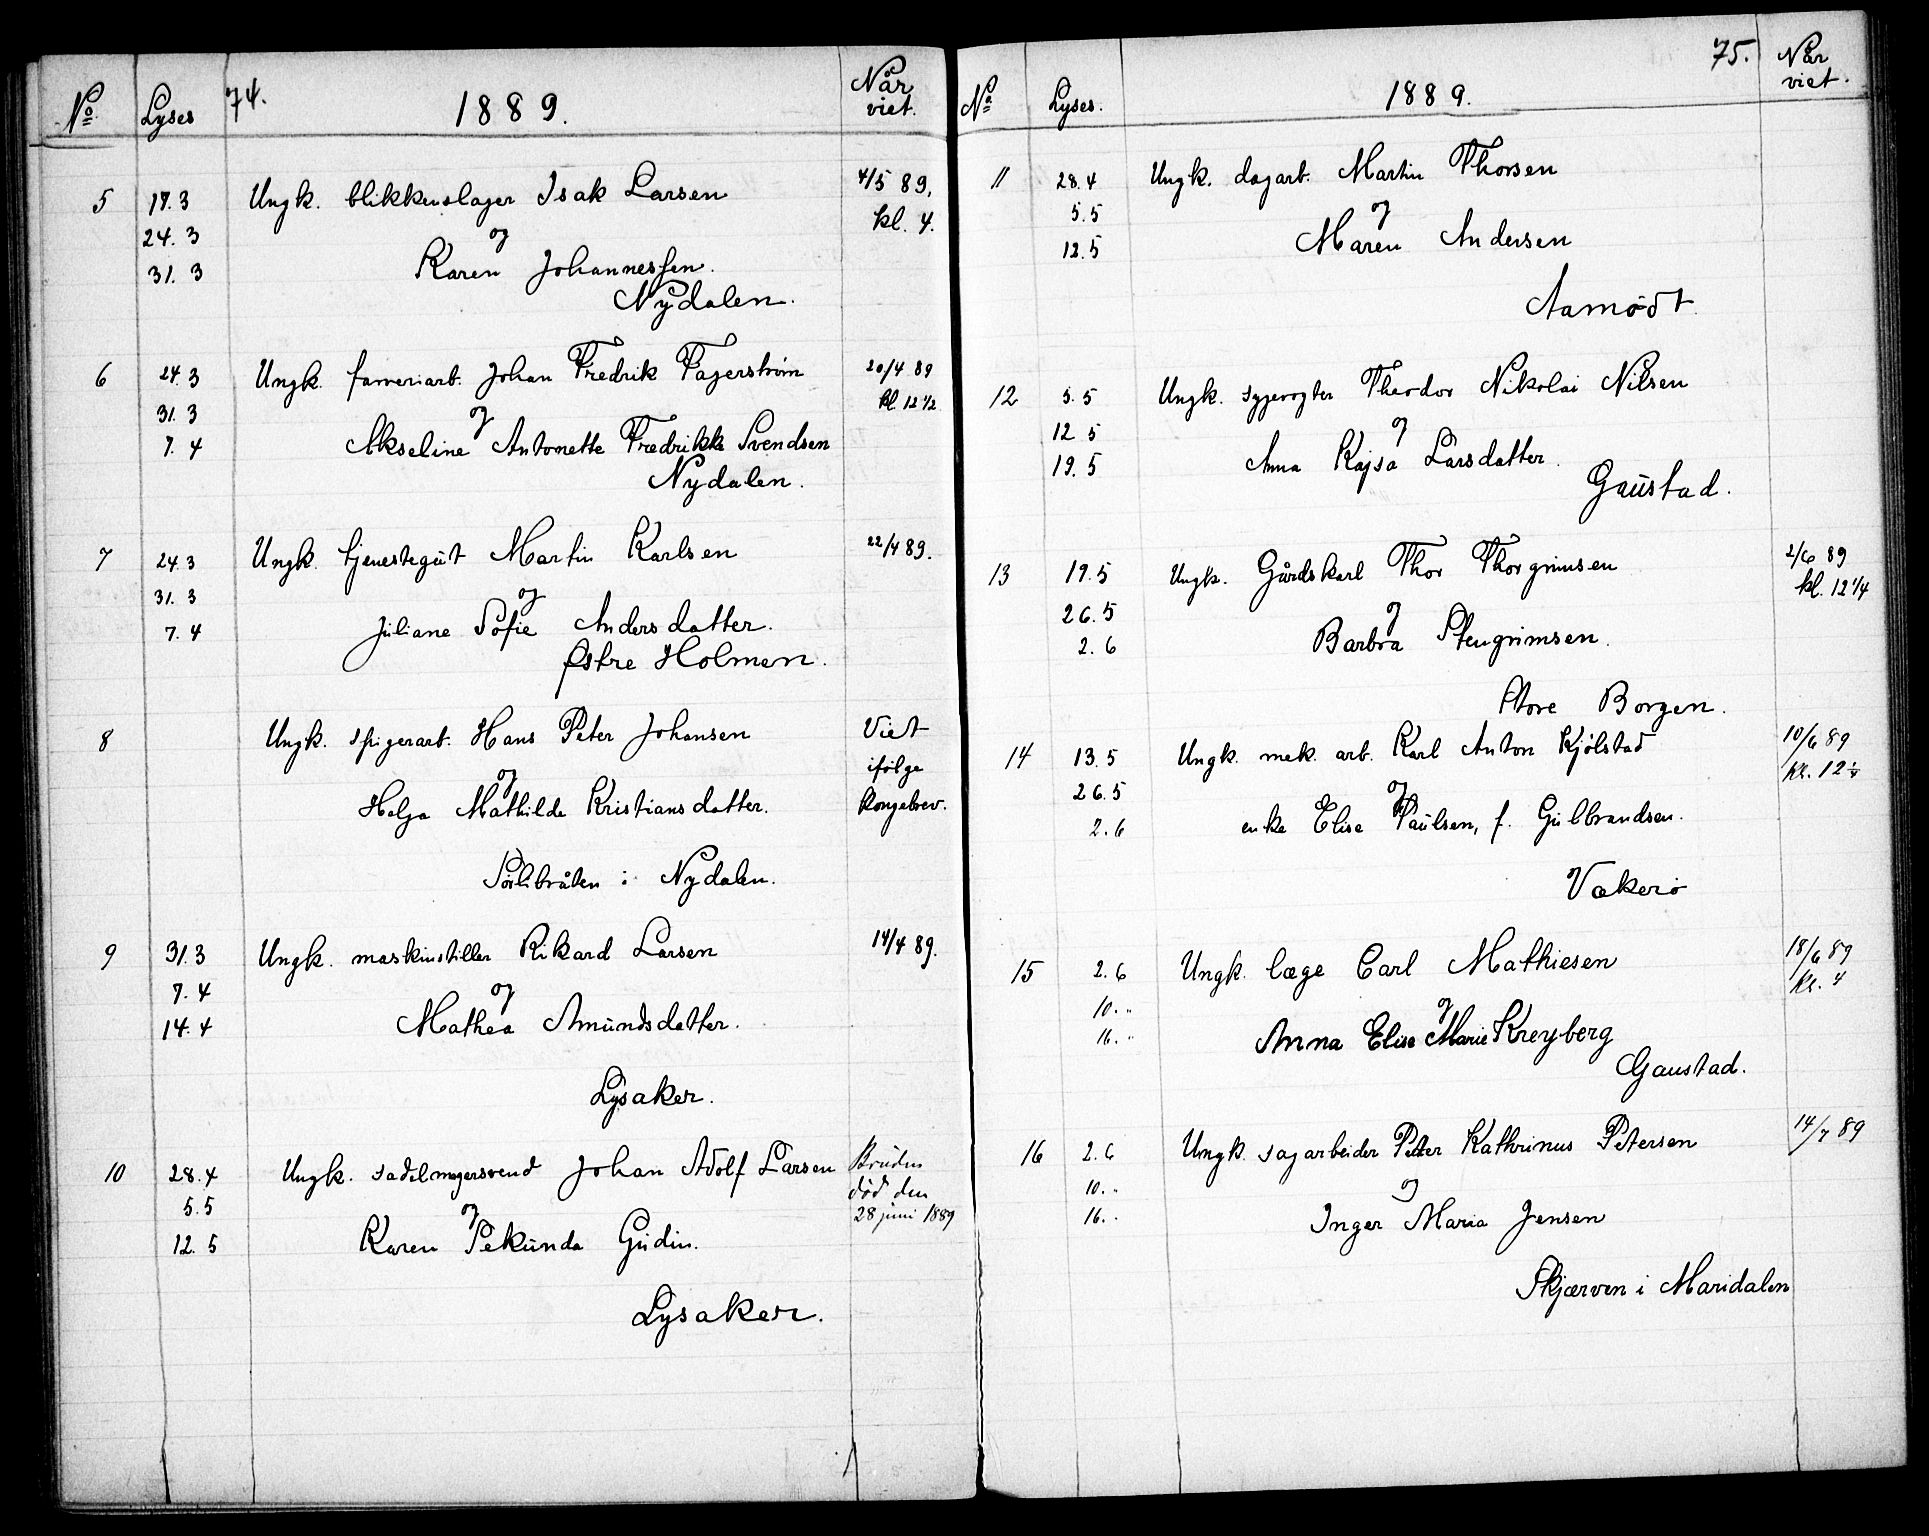 No. Lyses 74. 1889. Når viet.
5 17.3 Ungk. blikkenslager Isak Larsen 4/5 89,
24.3 og kl. 4.
31.3 Karen Johannessen.
Nydalen.
6 24.3 Ungk. farveriarb. Johan Fredrik Fagerstrøm 20/4 89
31.3 og kl. 12 1/2
7.4 Akseline Antonette Fredrikke Svendsen
Nydalen.
7 24.3 Ungk. tjenestegut Martin Karlsen 22/4 89.
31.3 og
7.4 Juliane Sofie Andersdatter.
Østre Holmen.
8 Ungk. spigerarb. Hans Peter Johansen Viet
og ifølge
Helga Mathilde Kristiansdatter. Kongebrev.
i Nydalen.
9 31.3 Ungk. maskinstiller Rikard Larsen 14/4 89.
7.4 og
14.4 Mathea Amundsdatter.
Lysaker.
10 28.4 Ungk. sadelmagersvend Johan Adolf Larsen Bruden
5.5 og død den
28 juni 1889
12.5 Karen Pekunda Gudin.
Lysaker.
No. Lyses. 1889. 75. Når viet.
11 28.4 Ungk. dagarb. Martin Thorsen
5.5 og
12.5 Maren Andersen
Aamodt
12 5.5 Ungk. sygevogter Theodor Nikolai Nilsen
12 5 og
19.5 Anna Kajsa Larsdatter.
Gaustad.
13 19.5 Ungk. Gårdskarl Thor Thorgrimsen 2/6 89
kl. 12 1/4
26.5 og
2.6 Barbra Stengrimsen.
Store Borgen.
14 13.5 Ungk. mek. arb. Karl Anton Kjølstad 10/6 89
26.5 og Kl. 12
2.6 enke Elise Paulsen, f. Gulbrandsen.
Vækerø
15 2.6 Ungk. læge Carl Mathiesen 18/6 89
10. „ og Kl. 4
16. „ Anna Elise Marie Kreyberg
Gaustad.
16 2.6 Ungk. sagarbeider Peter Kathrinus Petersen 14/7 89
10. „ og
16. „ Inger Maria Jensen
Skjærven i Maridalen